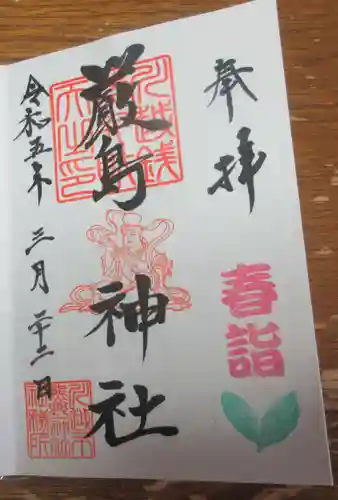 奉拝
春詣
厳島神社
令和五年三月二十二日